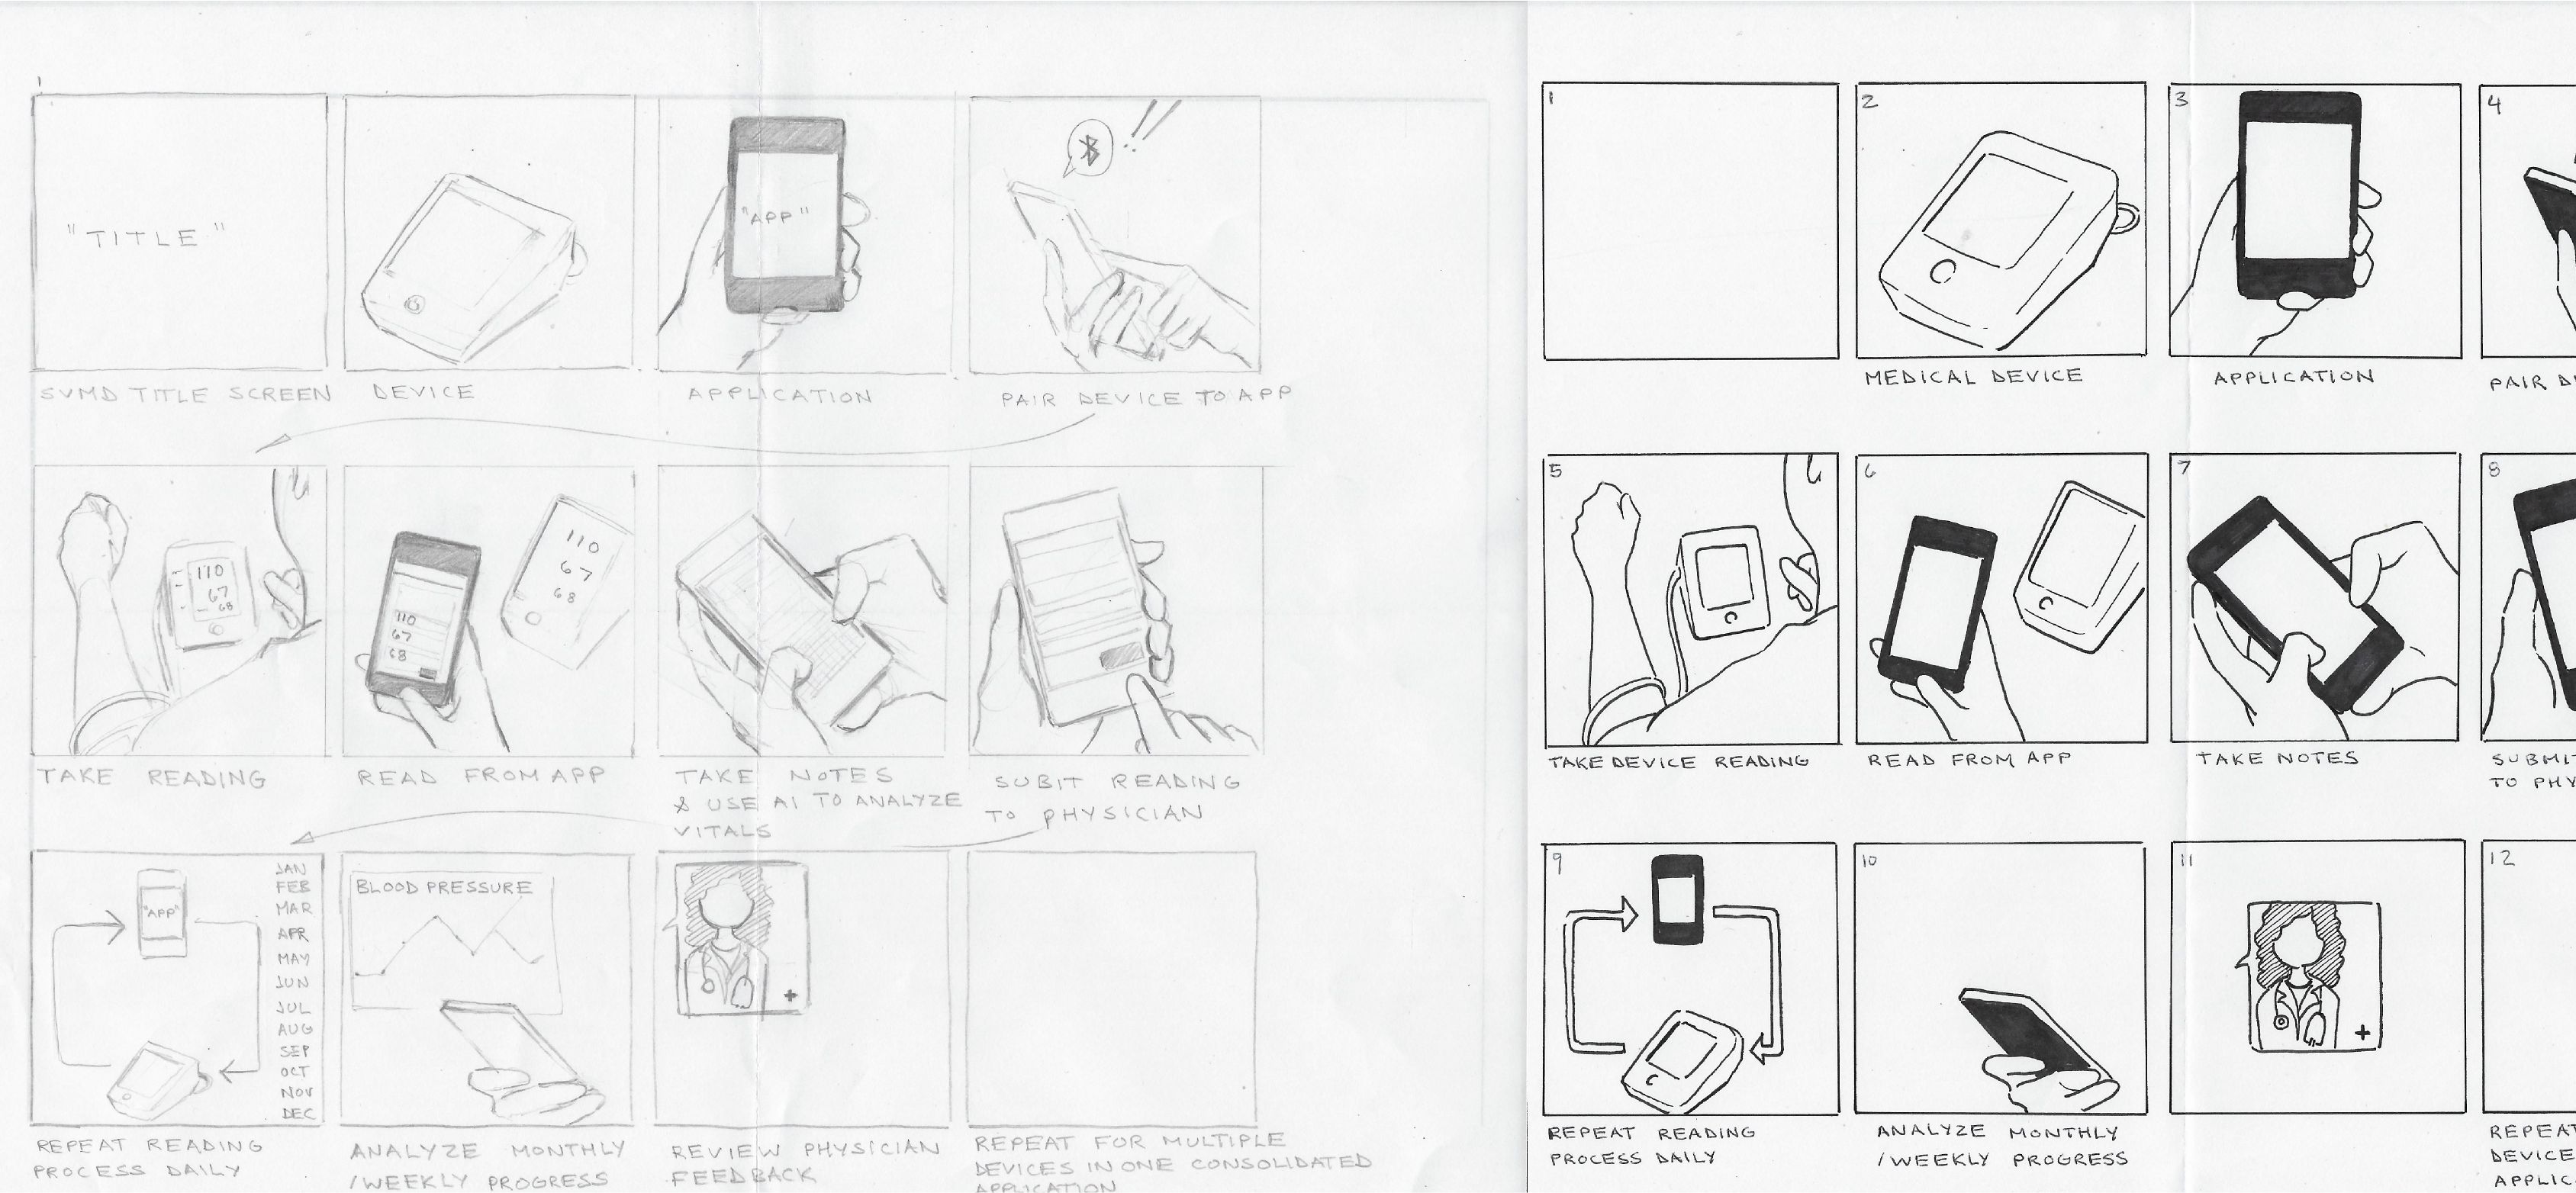 1
"TITLE"
SVMD TITLE SCREEN
DEVICE
"APP"
APPLICATION
!!
PAIR DEVICE TO APP
110
67
68
TAKE READING
110
67
68
110
67
68
READ FROM APP
TAKE NOTES
& USE AI TO ANALYZE
VITALS
SUBIT READING
TO PHYSICIAN
"APP"
JAN
FEB
MAR
APR
MAY
JUN
JUL
AUG
SEP
OCT
NOV
DEC
REPEAT READING
PROCESS DAILY
BLOOD PRESSURE
ANALYZE MONTHLY
/WEEKLY PROGRESS
+
REVIEW PHYSICIAN
FEEDBACK
REPEAT FOR MULTIPLE
DEVICES IN ONE CONSOLIDATED
APPLICATION
1
2
MEDICAL DEVICE
3
APPLICATION
4
PAIR D
5
TAKE DEVICE READING
6
READ FROM APP
7
TAKE NOTES
8
SUBMIT
TO PHY
9
REPEAT READING
PROCESS DAILY
10
ANALYZE MONTHLY
/WEEKLY PROGRESS
11
+
12
REPEAT
DEVICE
APPLIC